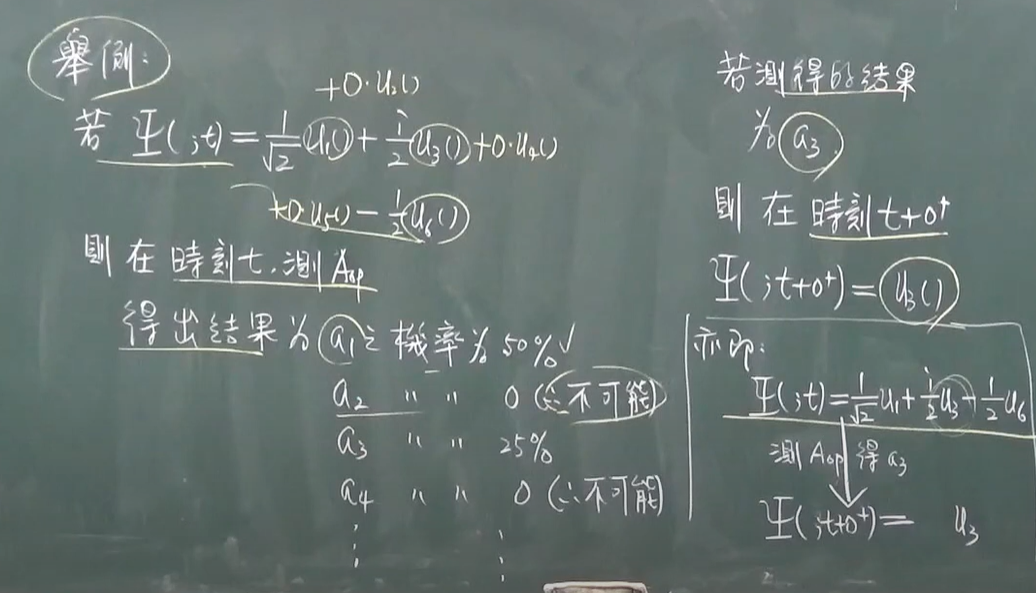 舉例:
+0·u₂()
若 Ψ(;t)=1/√2 u₁()+i/2 u₃()+0·u₄()
+0·u₅()-1/2 u₆()
則在時刻t,測Aop
得出結果為a₁之機率為50%✓
a₂ 〃 〃 0(∴不可能)
a₃ 〃 〃 25%
a₄ 〃 〃 0(∴不可能)
⋮ ⋮
若測得的結果
為a₃,
則在時刻t+0⁺
Ψ(;t+0⁺)=u₃()
亦即:
Ψ(;t)=1/√2 u₁+i/2 u₃-1/2 u₆
測Aop 得a₃
Ψ(;t+0⁺)= u₃